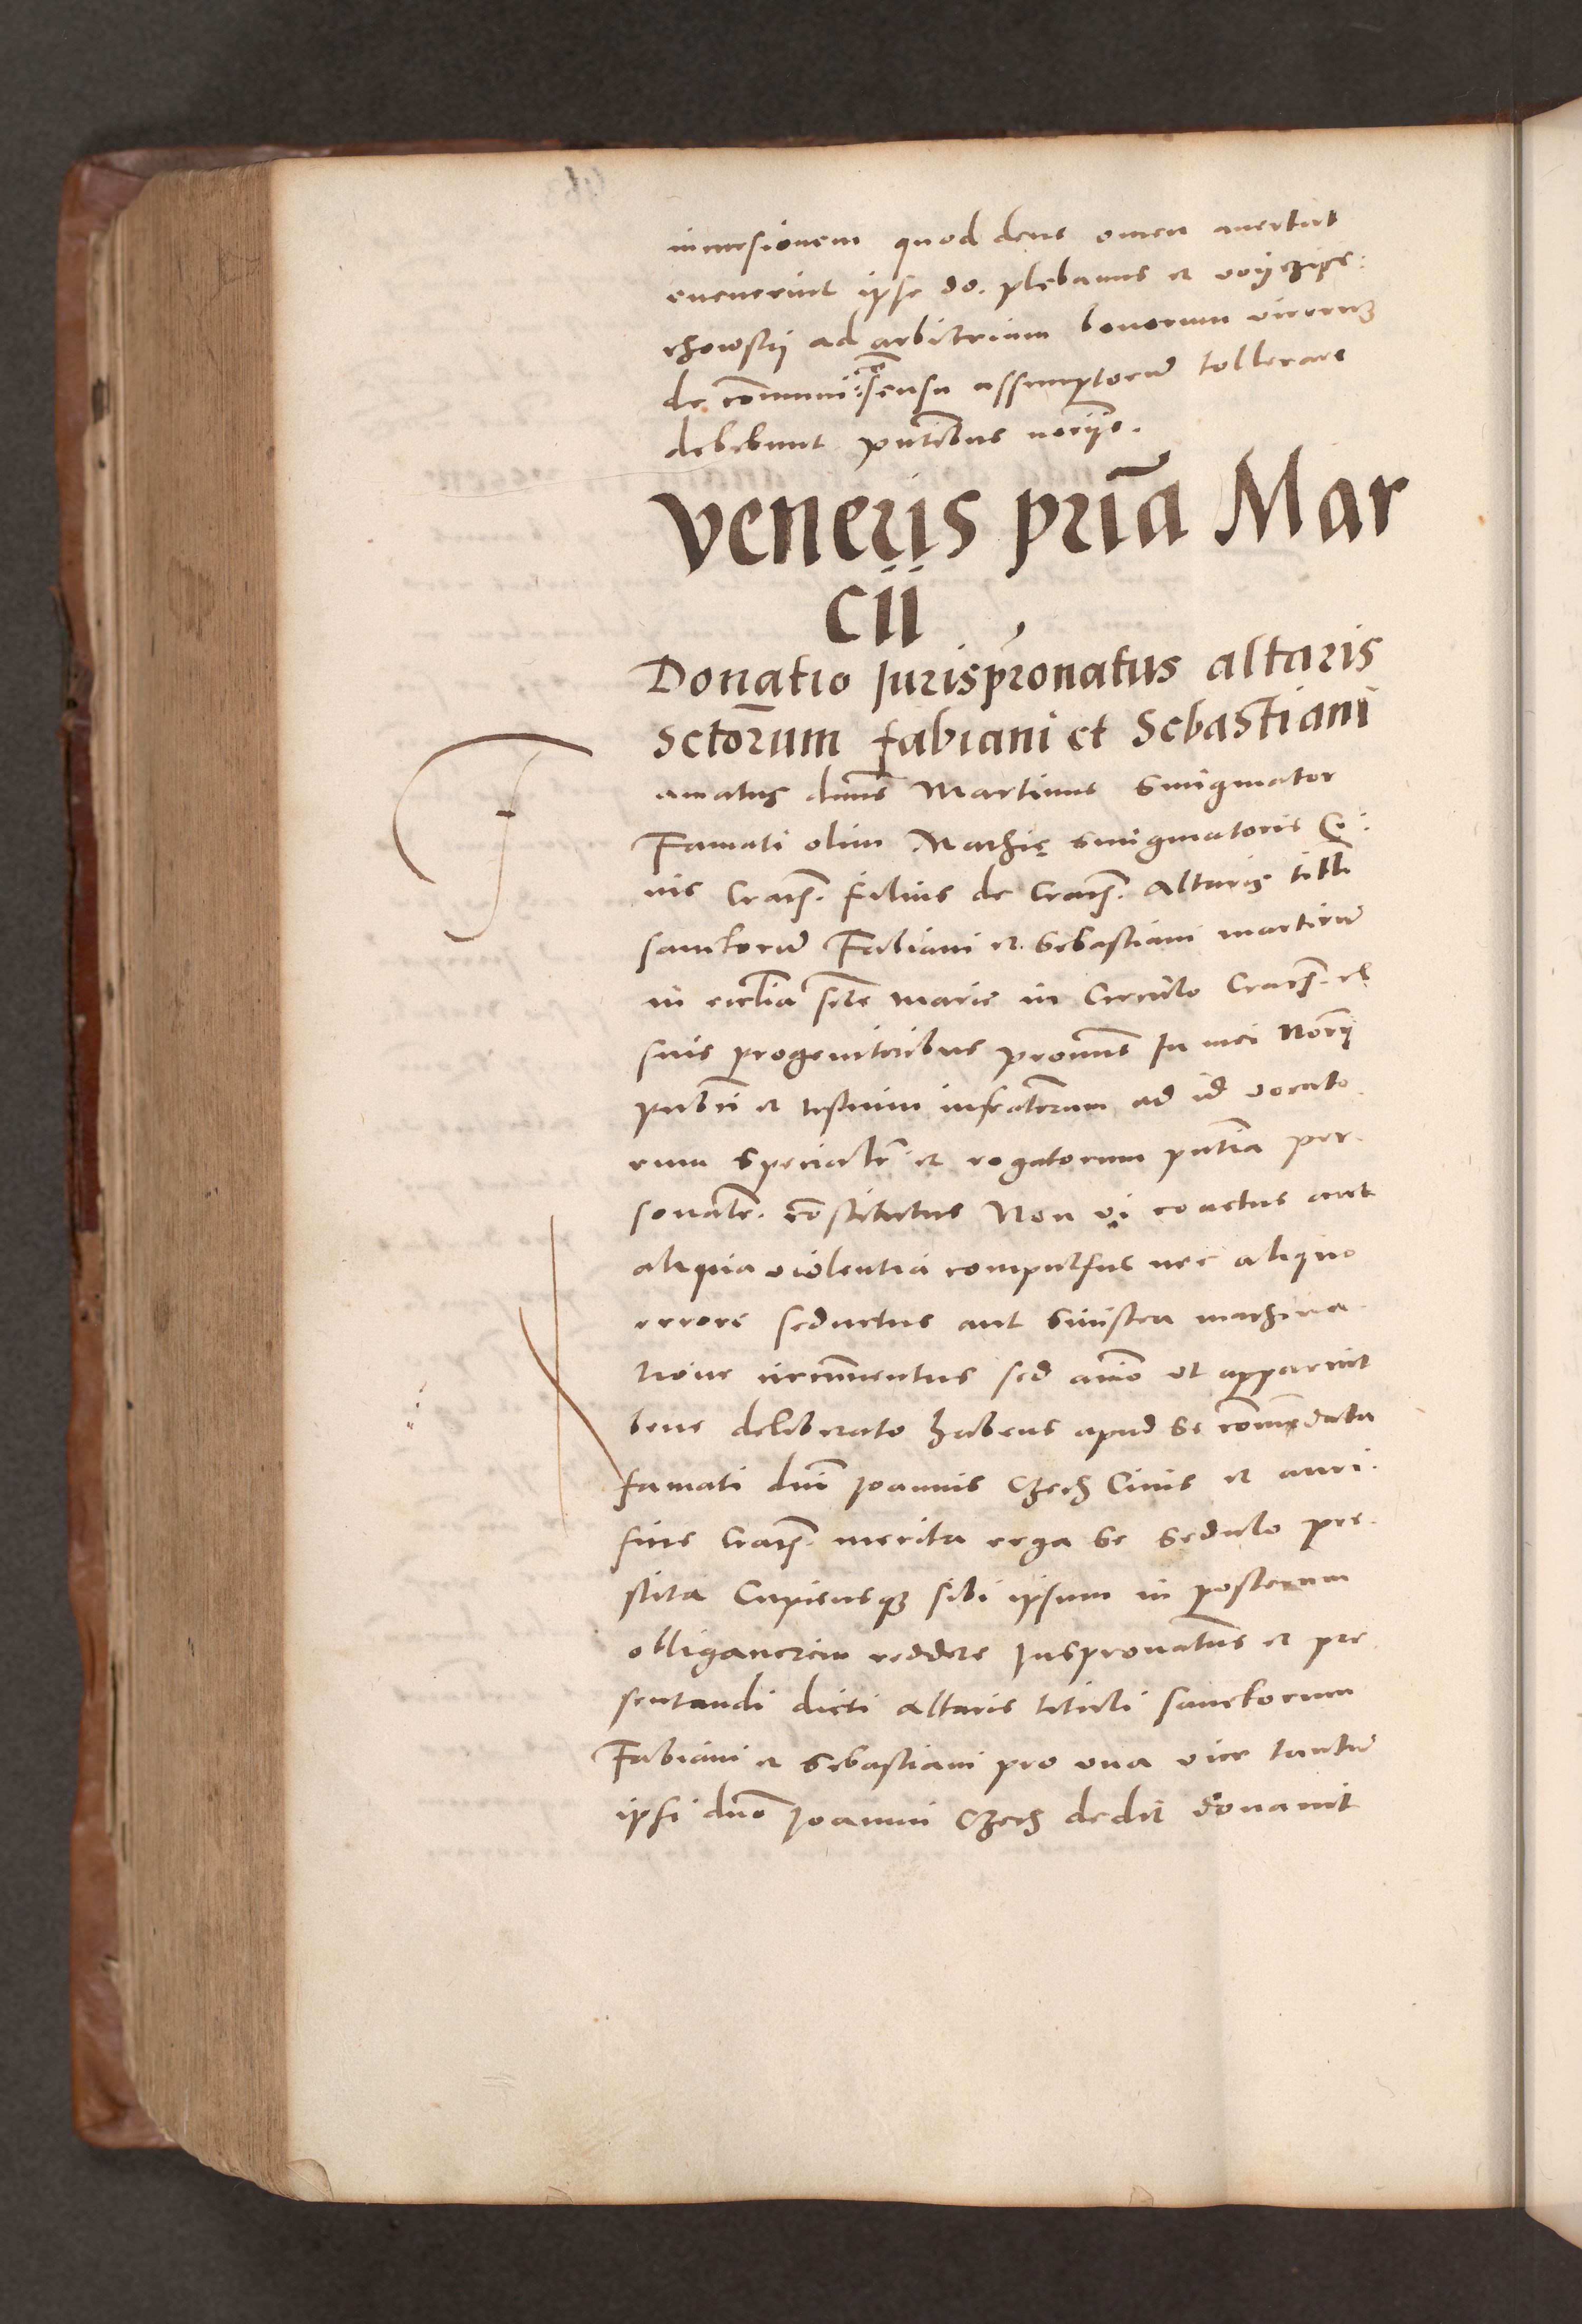 incursionem quod deus omen avertat
evenerint ipse do. plebanus et voijczie:
chowscij ad arbitrium bonorum virorum
de cōmuni cōsensu assumptorū tollerare
debebunt pntibus norijs.
Veneris pria Mar
cii
Donatio Jurispronatus altaris
Sctorum fabiani et Sebastiani
Famatus dnus Martinus Smigmator
Famati olim Mathię smigmatoris Ci:
vis Craco. filius de Craco. Altaris titli
sanctorū Fabiani et Sebastiani martirū
in ecclia scte Marie in Circulo Craco. ex
suis progenitoribus pronus In mei Norij
publi et testium infrascrorum ad id vocato
rum specialr et rogatorum pntia per
sonalr. cōstitutus Non vi coactus aut
aliqua violentia compulsus nec aliquo
errore seductus aut sinistra machina
tione circumventus sed aio ut apparuit
bene deliberato habens apud se cōmēdata
famati dni Joannis Czech Civis et auri
fics Craco. merita erga se sedulo pre
stita Cupiensqȝ sibi ipsum in posterum
obligaciorem reddere Juspronatus et pre
sentandi dicti altaris tituli sanctorum
Fabiani et Sebastiani pro una vice tantū
ipsi dno Joanni Czech dedit donavit